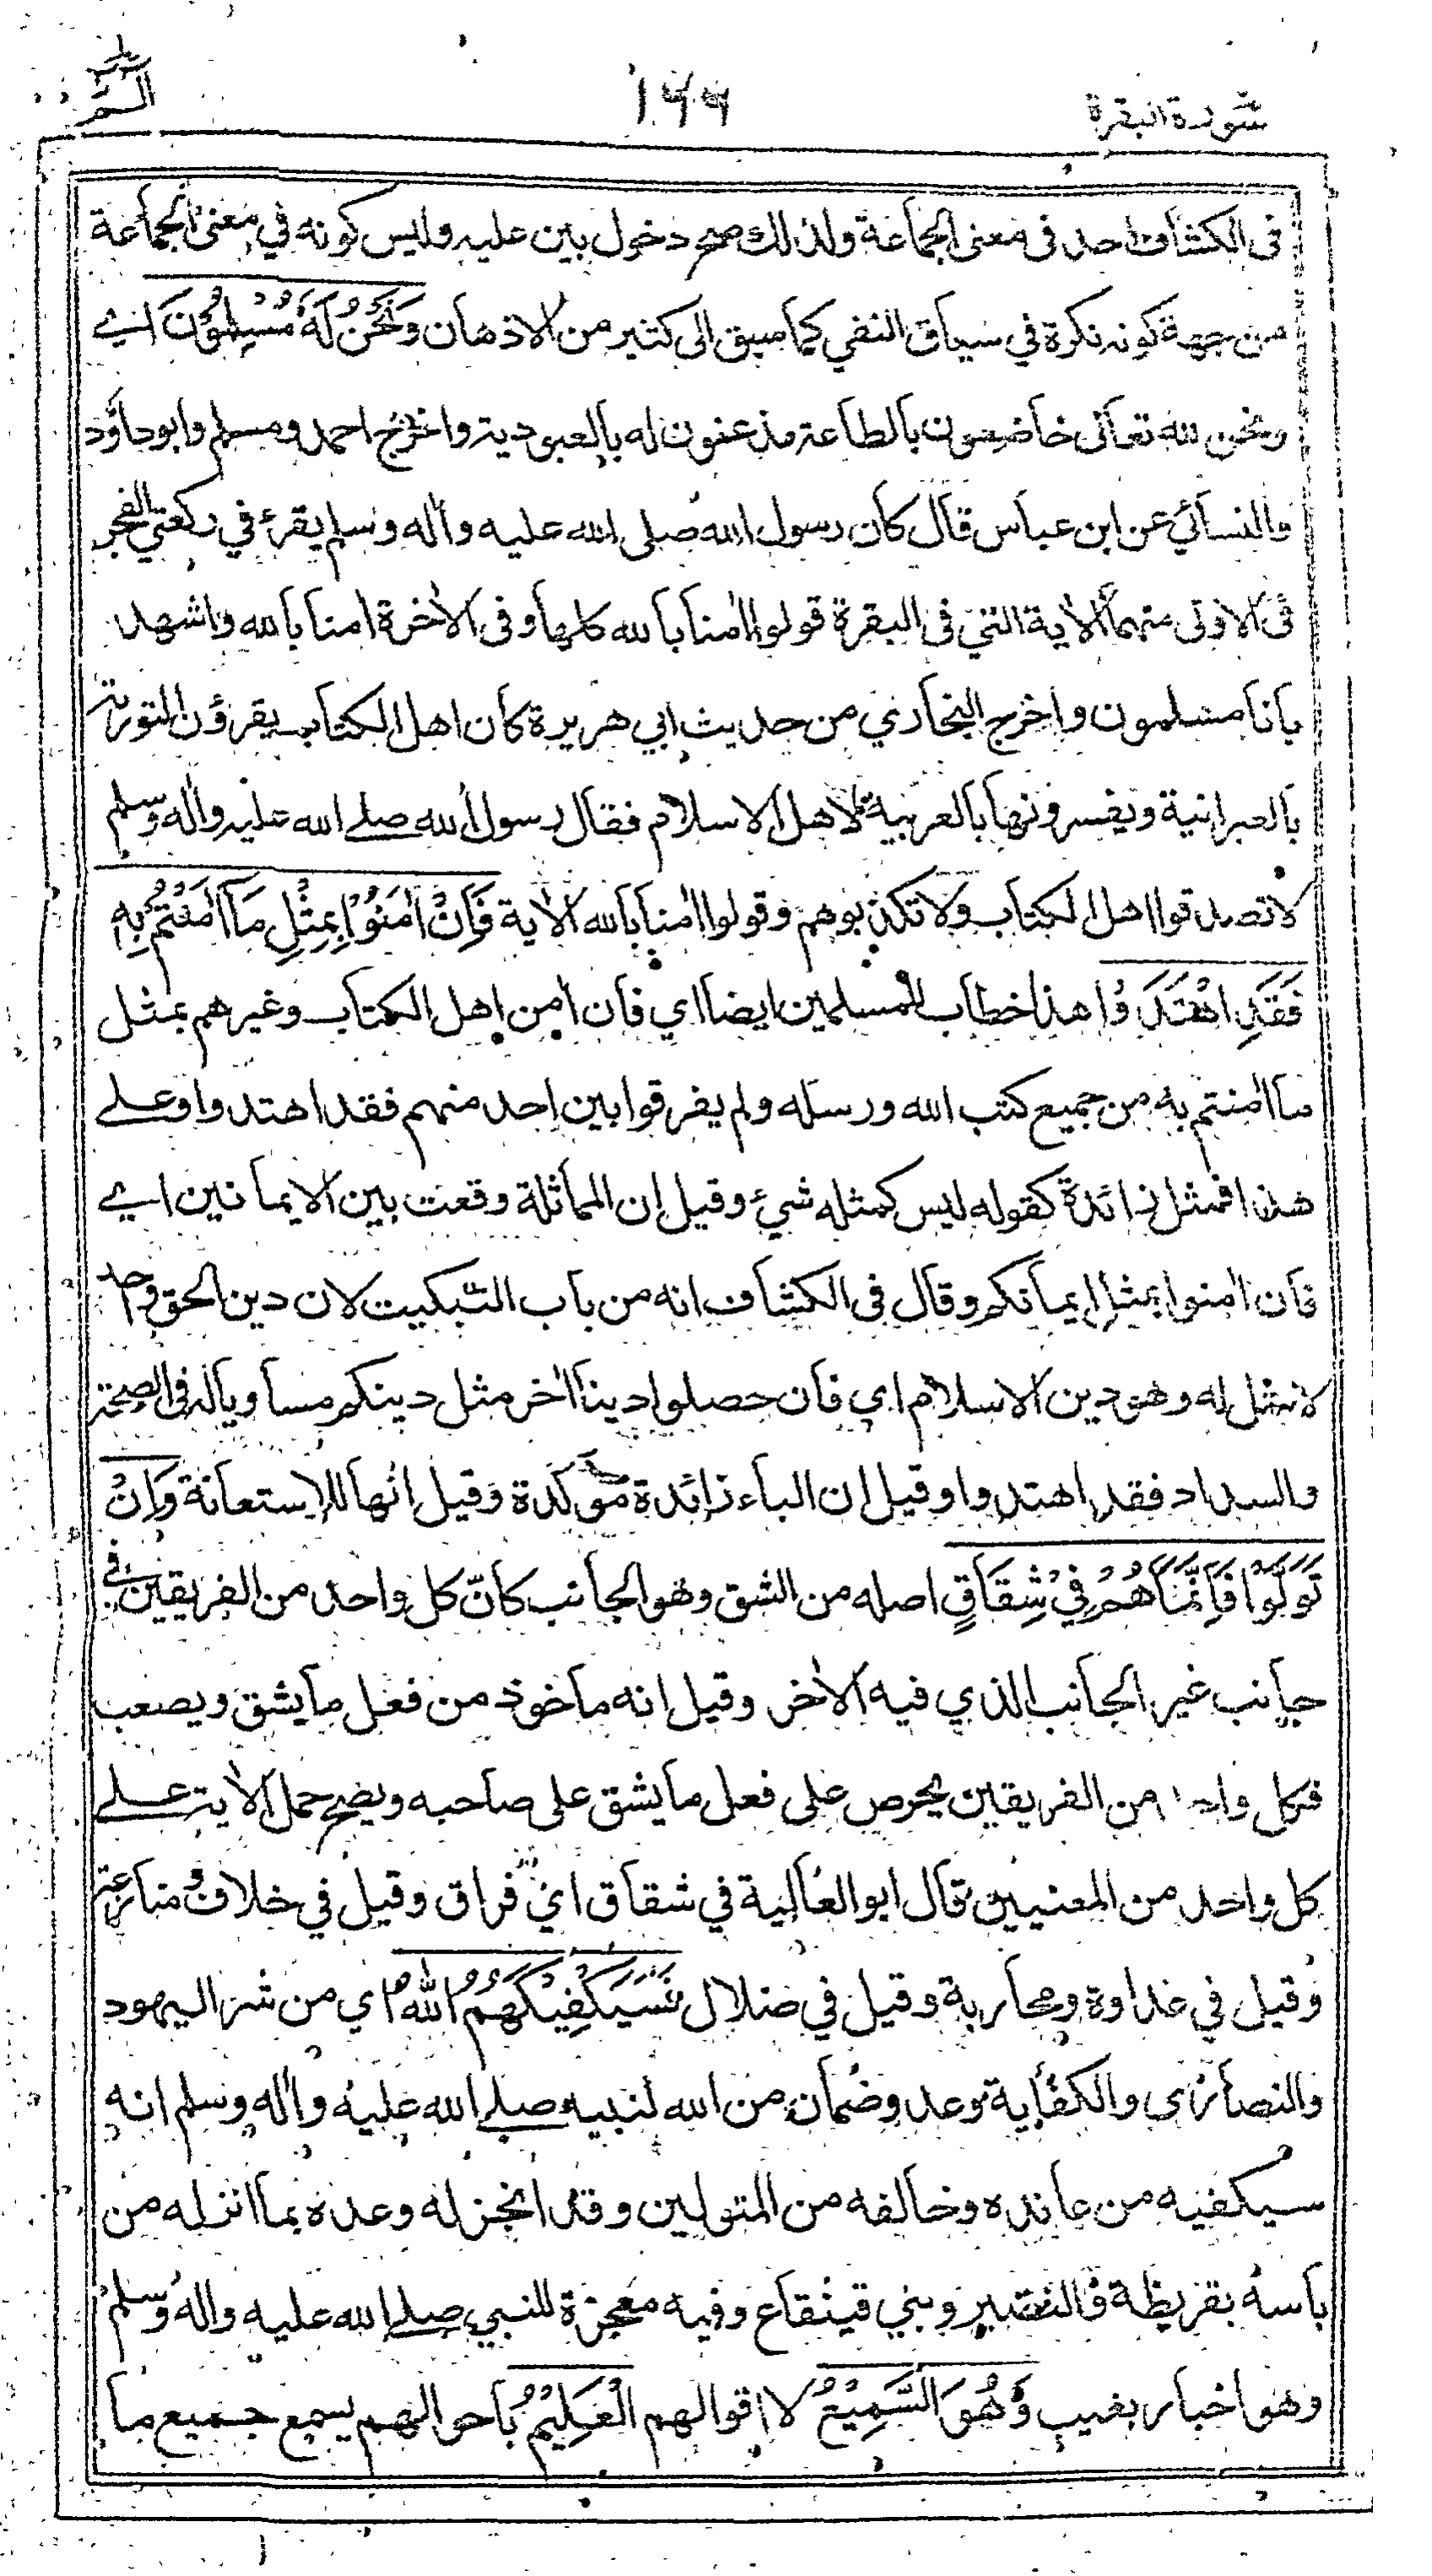 سورة البقرة
١٧٧
الٓمّٓ
فى الكشاف احد فى معنى الجماعة ولذلك صح دخول بين عليه وليس كونه في معنى الجماعة
من جهة كونه نكرة في سياق النفي كما سبق الى كثير من الاذهان وَنَحْنُ لَهُ مُسْلِمُوْنَ اي
ونحن لله تعالى خاضعون بالطاعة مذعنون له بالعبودية واخرج احمد ومسلم وابوداؤد
والنسائي عن ابن عباس قال كان رسول الله صلى الله عليه واٰله وسلم يقرء في ركعتي الفجر
فى الاولى منهما الاٰية التي فى البقرة قولوا اٰمنا بالله كلها وفى الاٰخرة اٰمنا بالله واشهد
بانا مسلمون واخرج البخاري من حديث ابي هريرة كان اهل الكتاب يقرؤن التورٰىة
بالعبرانية ويفسرونها بالعربية لاهل الاسلام فقال رسول الله صلے الله عليه واٰله وسلم
لا تصدقوا اهل الكتاب ولا تكذبوهم وقولوا اٰمنا بالله الاٰية فَاِنْ اٰمَنُوْا بِمِثْلِ مَآ اٰمَنْتُمْ بِهٖ
فَقَدِ اهْتَدَوْا هذا خطاب للمسلمين ايضا اي فان اٰمن اهل الكتاب وغيرهم بمثل
ما اٰمنتم به من جميع كتب الله ورسله ولم يفرقوا بين احد منهم فقد اهتدوا وعلے
هذا فمثل زائدة كقوله ليس كمثله شيئ وقيل ان المماثلة وقعت بين الايمانين اي
فان اٰمنوا بمثل ايمانكم وقال فى الكشاف انه من باب التبكيت لان دين الحق واحد
لا مثل له وهو دين الاسلام اي فان حصلوا دينا اٰخر مثل دينكم مساويا له فى الصحة
والسداد فقد اهتدوا وقيل ان الباء زائدة مؤكدة وقيل انها للاستعانة وَاِنْ
تَوَلَّوْا فَاِنَّمَا هُمْ فِيْ شِقَاقٍ اصله من الشق وهو الجانب كانّ كل واحد من الفريقين في
جانب غير الجانب الذي فيه الاٰخر وقيل انه ماخوذ من فعل ما يشق ويصعب
فكل واحد من الفريقين يحرص على فعل ما يشق على صاحبه ويصح حمل الاٰية علے
كل واحد من المعنيين قال ابو العالية في شقاق اي فراق وقيل في خلاف ومنازعة
وقيل في عداوة ومحاربة وقيل في ضلال فَسَيَكْفِيْكَهُمُ اللّٰهُ اي من شر اليهود
والنصارى والكفاية وعد وضمان من الله لنبيه صلے الله عليه واٰله وسلم انه
سيكفيه من عانده وخالفه من المتولين وقد انجز له وعده بما انزله من
باسه بقريظة والنضير وبني قينقاع وفيه معجزة للنبي صلے الله عليه واٰله وسلم
وهو اخبار بغيب وَهُوَ السَّمِيْعُ لاقوالهم الْعَلِيْمُ باحوالهم يسمع جميع ما